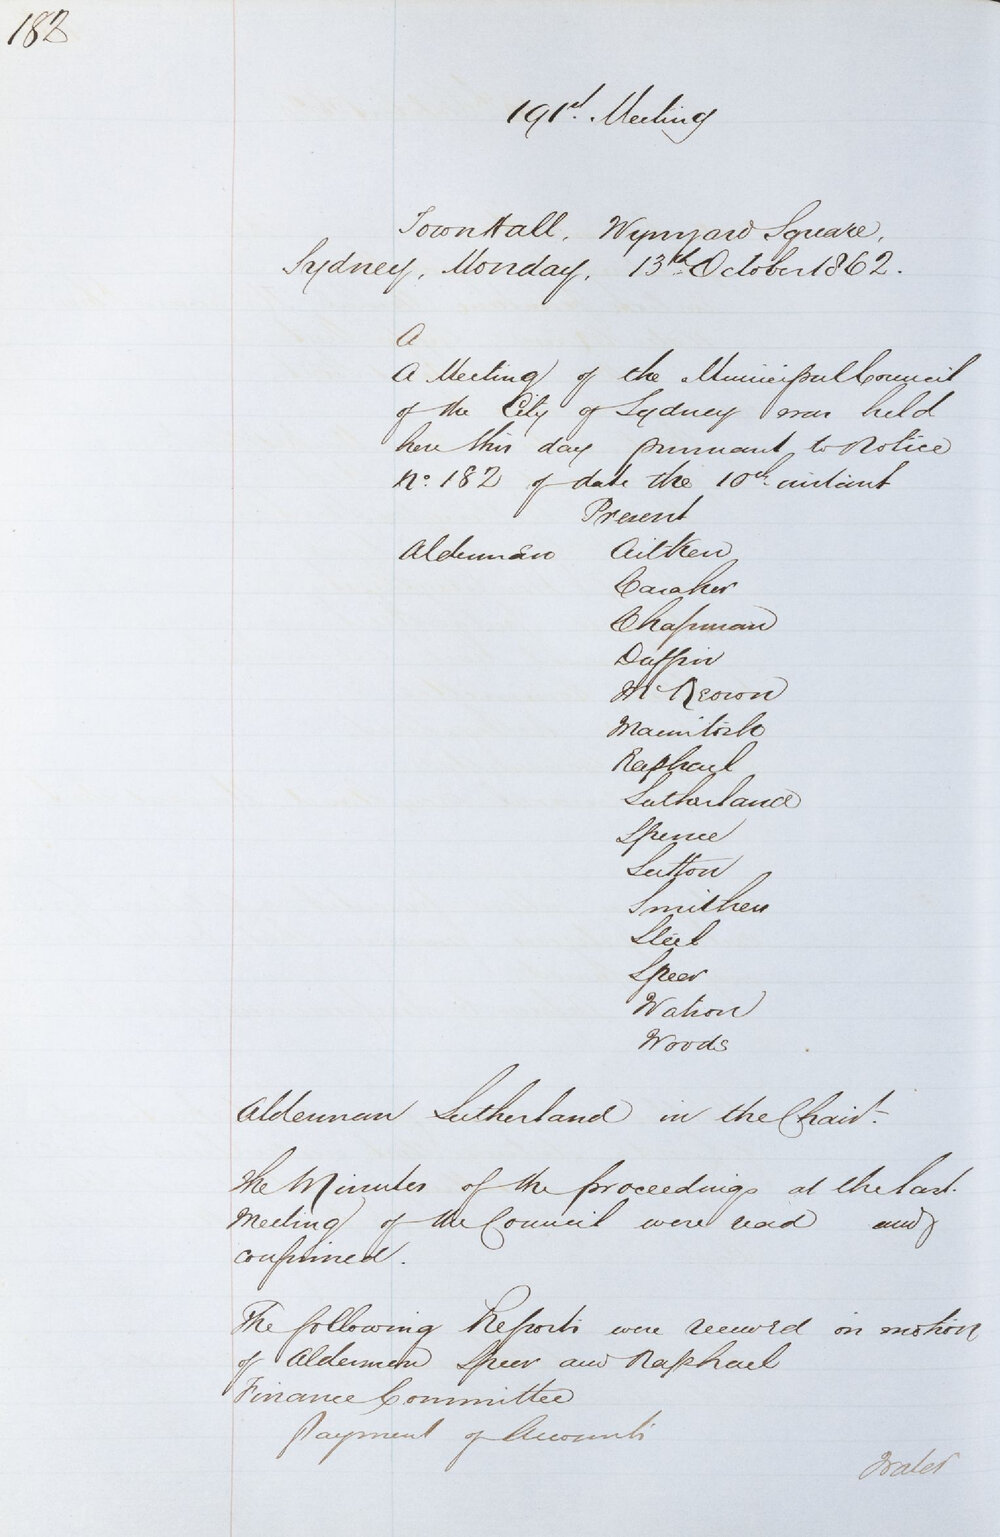 182
191st. Meeting
Town Hall, Wynyard Square,
Sydney, Monday, 13th October 1862.
A
A Meeting of the Municipal Council
of the City of Sydney was held
here this day pursuant to Notice
No. 182 of date the 10th instant
Present
Aldermen Aitken
Caraher
Chapman
Daffin
McKeown
Macintosh
Raphael
Sutherland
Spence
Sutton
Smithers
Steel
Speer
Watson
Woods
Alderman Sutherland in the Chair.
The Minutes of the proceedings at the last
Meeting of the Council were read and
confirmed.
The following Reports were received on motion
of Aldermen Speer and Raphael
Finance Committee
Payment of Accounts
Water